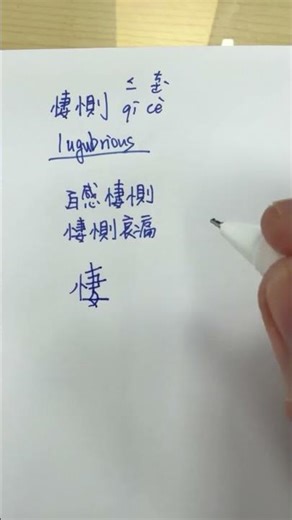 悽惻 qī cè
lugubrious
百感悽惻
悽惻哀痛
悽